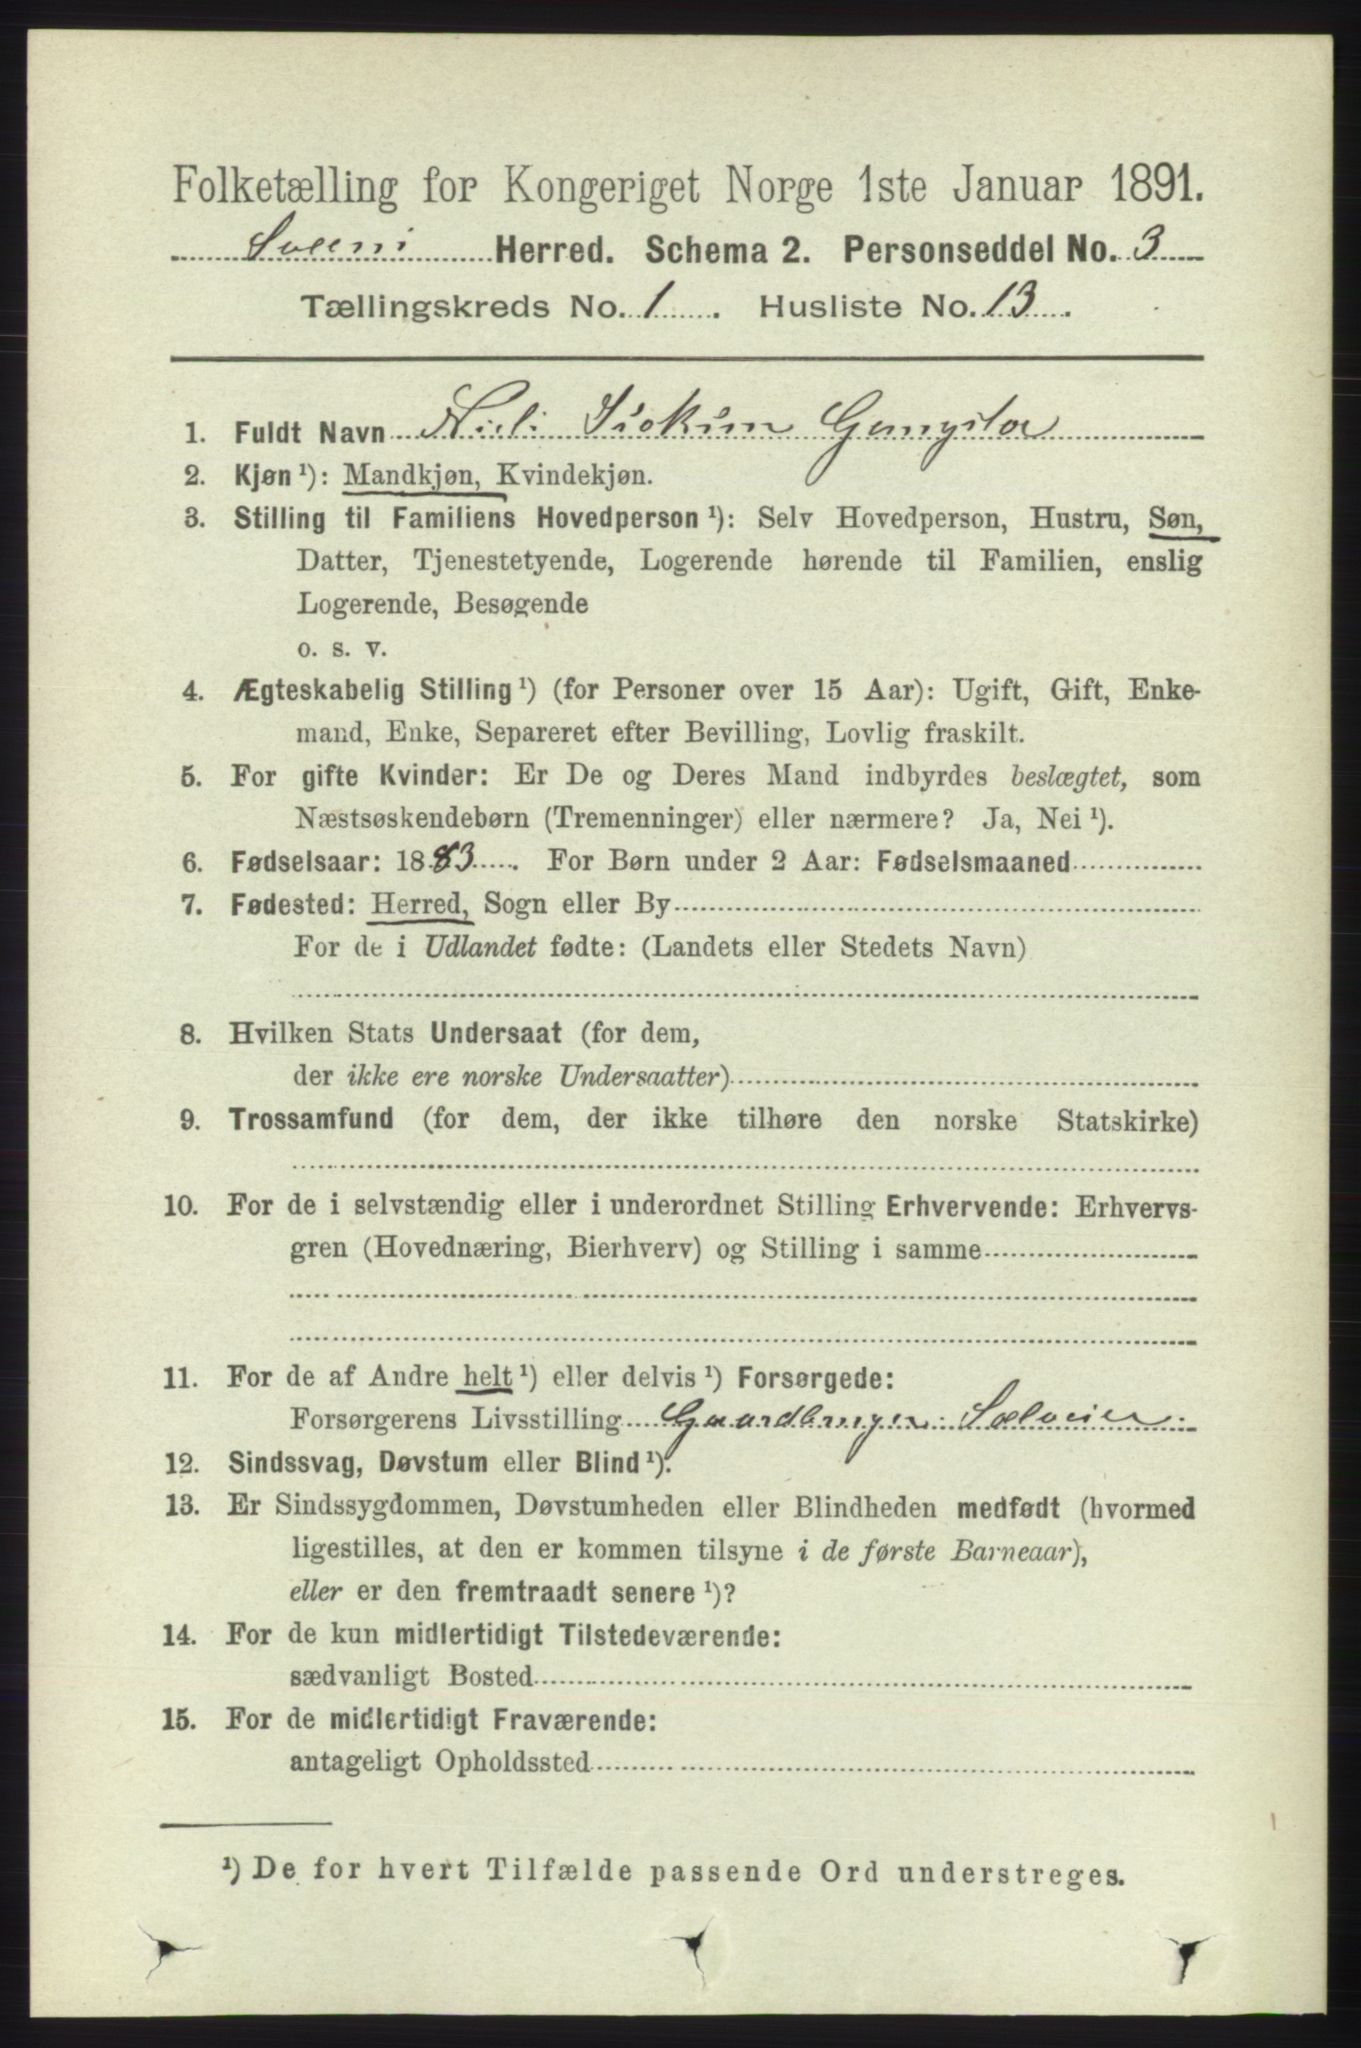 Folketælling for Kongeriget Norge 1ste Januar 1891.
Herred. Schema 2. Personseddel No. 3
Tællingskreds No. 1. Husliste No. 13.
1. Fuldt Navn
2. Kjøn ¹): Mandkjøn, Kvindekjøn.
3. Stilling til Familiens Hovedperson ¹): Selv Hovedperson, Hustru, Søn,
Datter, Tjenestetyende, Logerende hørende til Familien, enslig
Logerende, Besøgende
o. s. v.
4. Ægteskabelig Stilling ¹) (for Personer over 15 Aar): Ugift, Gift, Enke-
mand, Enke, Separeret efter Bevilling, Lovlig fraskilt.
5. For gifte Kvinder: Er De og Deres Mand indbyrdes beslægtet, som
Næstsøskendebørn (Tremenninger) eller nærmere? Ja, Nei ¹).
6. Fødselsaar: 1883. For Børn under 2 Aar: Fødselsmaaned
7. Fødested: Herred, Sogn eller By
For de i Udlandet fødte: (Landets eller Stedets Navn)
8. Hvilken Stats Undersaat (for dem,
der ikke ere norske Undersaatter)
9. Trossamfund (for dem, der ikke tilhøre den norske Statskirke)
10. For de i selvstændig eller i underordnet Stilling Erhvervende: Erhvervs-
gren (Hovednæring, Bierhverv) og Stilling i samme
11. For de af Andre helt ¹) eller delvis ¹) Forsørgede:
Forsørgerens Livsstilling Gaardbruger Selveier
12. Sindssvag, Døvstum eller Blind ¹).
13. Er Sindssygdommen, Døvstumheden eller Blindheden medfødt (hvormed
ligestilles, at den er kommen tilsyne i de første Barneaar),
eller er den fremtraadt senere ¹)?
14. For de kun midlertidigt Tilstedeværende:
sædvanligt Bosted
15. For de midlertidigt Fraværende:
antageligt Opholdssted
¹) De for hvert Tilfælde passende Ord understreges.